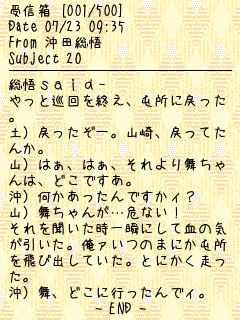 受信箱 [001/500]
Date 07/23 09:35
From 沖田総悟
Subject 20
総悟ｓａｉｄ-
やっと巡回を終え、屯所に戻った
。
土）戻ったぞー。山崎、戻ってた
んか。
山）はぁ、はぁ、それより舞ちゃ
んは、どこですあ。
沖）何かあったんですかィ？
山）舞ちゃんが…危ない！
それを聞いた時一瞬にして血の気
が引いた。俺ァいつのまにか屯所
を飛び出していた。とにかく走っ
た。
沖）舞、どこに行ったんでィ。
- END -